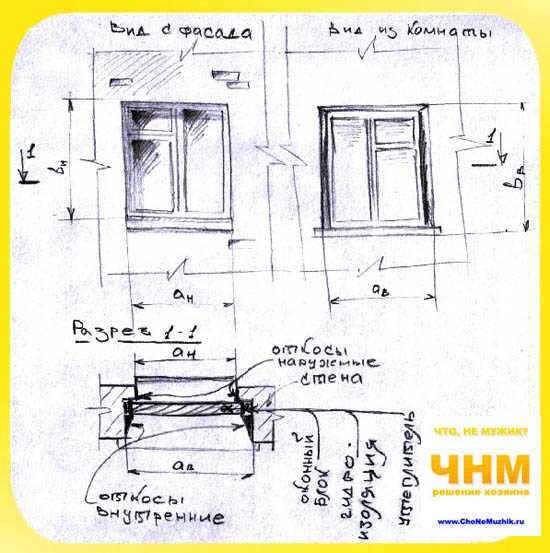 Вид с фасада
Вид из комнаты
1
вн
1
вв
ан
ав
Разрез 1-1
ан
откосы
наружные
стена
ав
откосы
внутренние
оконный
блок
гидро.
изоляция
утеплитель
ЧТО, НЕ МУЖИК?
ЧНМ
решение хозяина
www.ChoNeMuzhik.ru